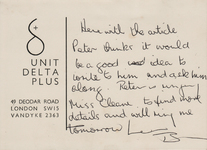 UNIT
DELTA
PLUS
49 DEODAR ROAD
LONDON SW15
VANDYKE 2363
Here with the article
Peter thinks it would
be a good idea to
write to him and ask him
along. Peter is
Miss Cleave to find more
details and will ring me
tomorrow
B